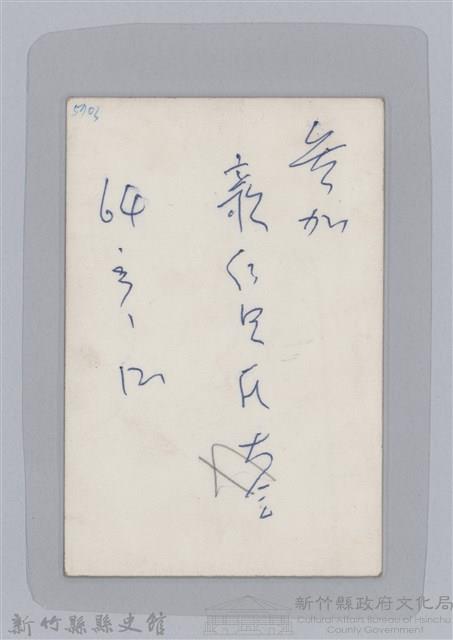 5703
參加
親仁里民大会
64
新竹縣政府文化局
Cultural Affairs Bureau of Hsinchu
County Government
新竹縣縣史館